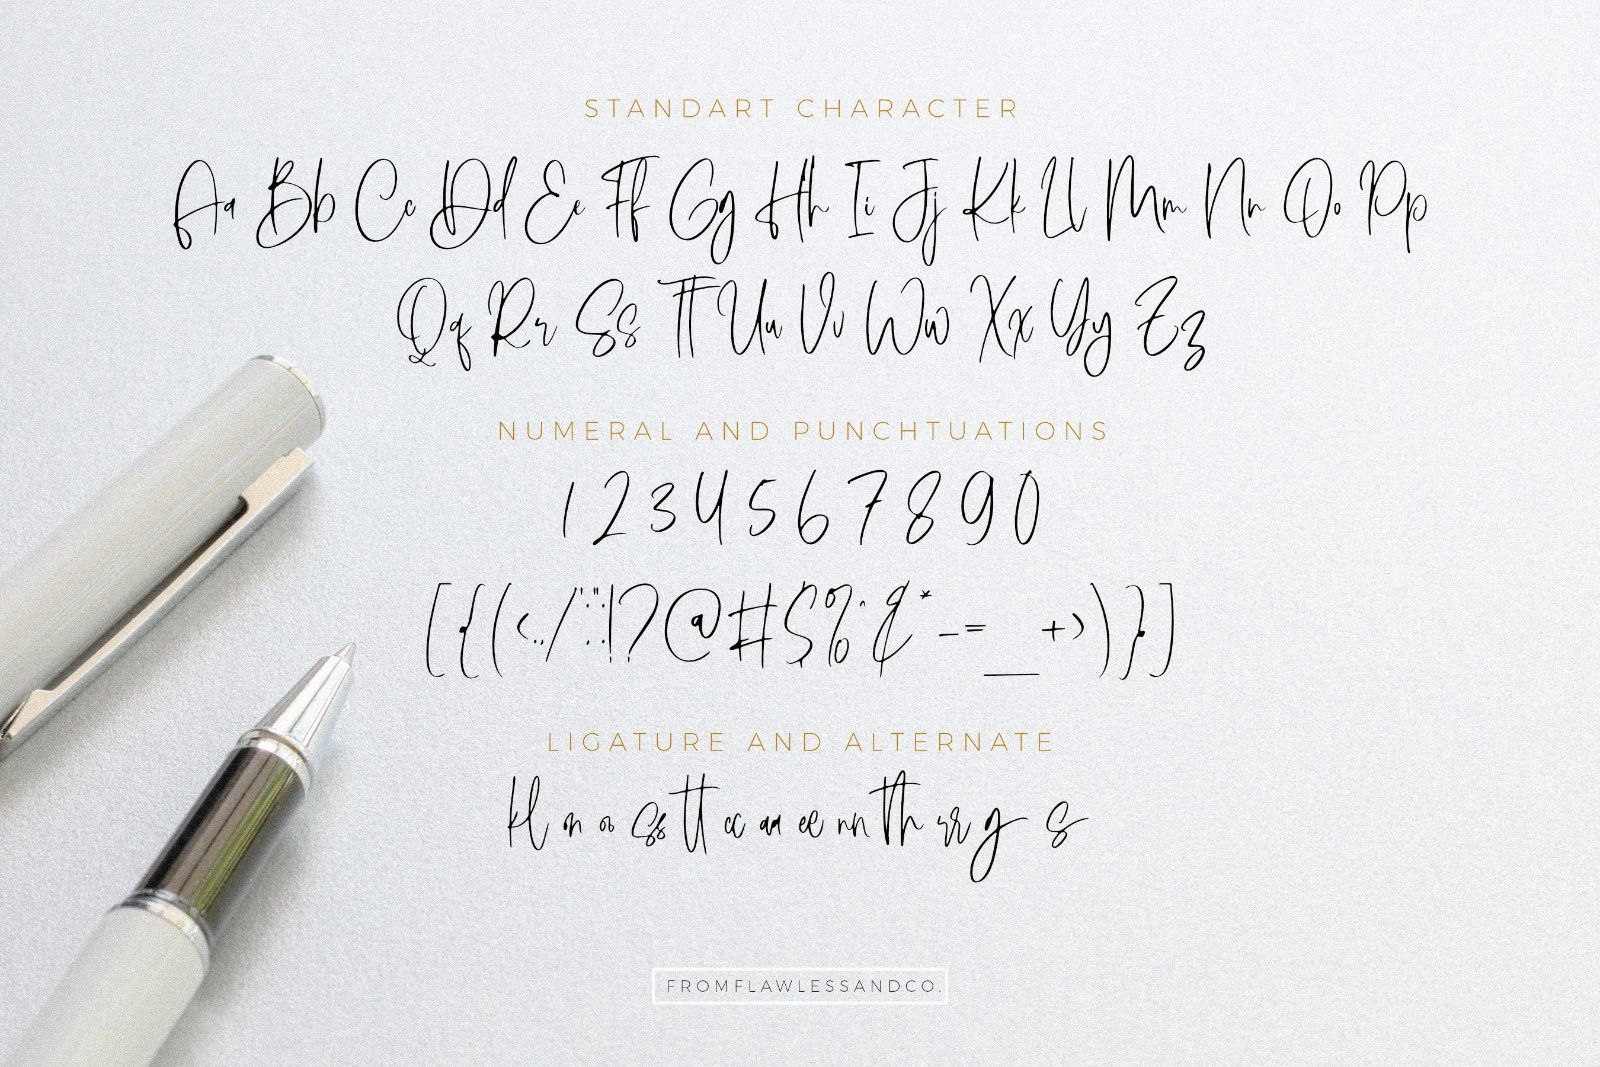 STANDART CHARACTER
Aa Bb Cc Dd Ee Ff Gg Hh Ii Jj Kk Ll Mm Nn Oo Pp
Qq Rr Ss Tt Uu Vv Ww Xx Yy Zz
NUMERAL AND PUNCHTUATIONS
1 2 3 4 5 6 7 8 9 0
[{(<.,/'":;!?@#$%^&*-=_+>)}]
LIGATURE AND ALTERNATE
kl on oo ss tt cc aa ee nn th rr g s
FROMFLAWLESSANDCO.